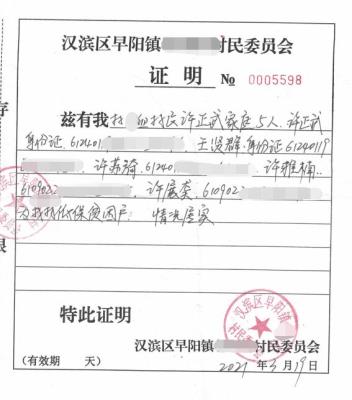 汉滨区早阳镇 村民委员会
证明 № 0005598
兹有我村 组村民许正武家庭5人、许正武
身份证.612401 王 群.身份证61240119
许 琦.612401 许雅楠.
610902 许宸 610902
为我村低保贫困户: 情况属实
特此证明
汉滨区早阳镇 村民委员会
(有效期 天) 2021年3月19日
汉滨区早阳镇
村民委